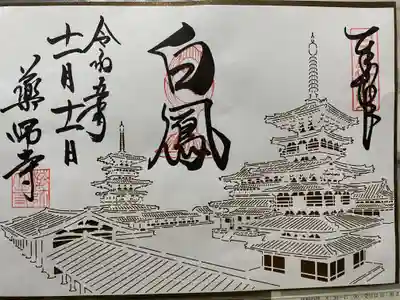 奉拝
白鳳
令和五年
十一月十一日
薬師寺